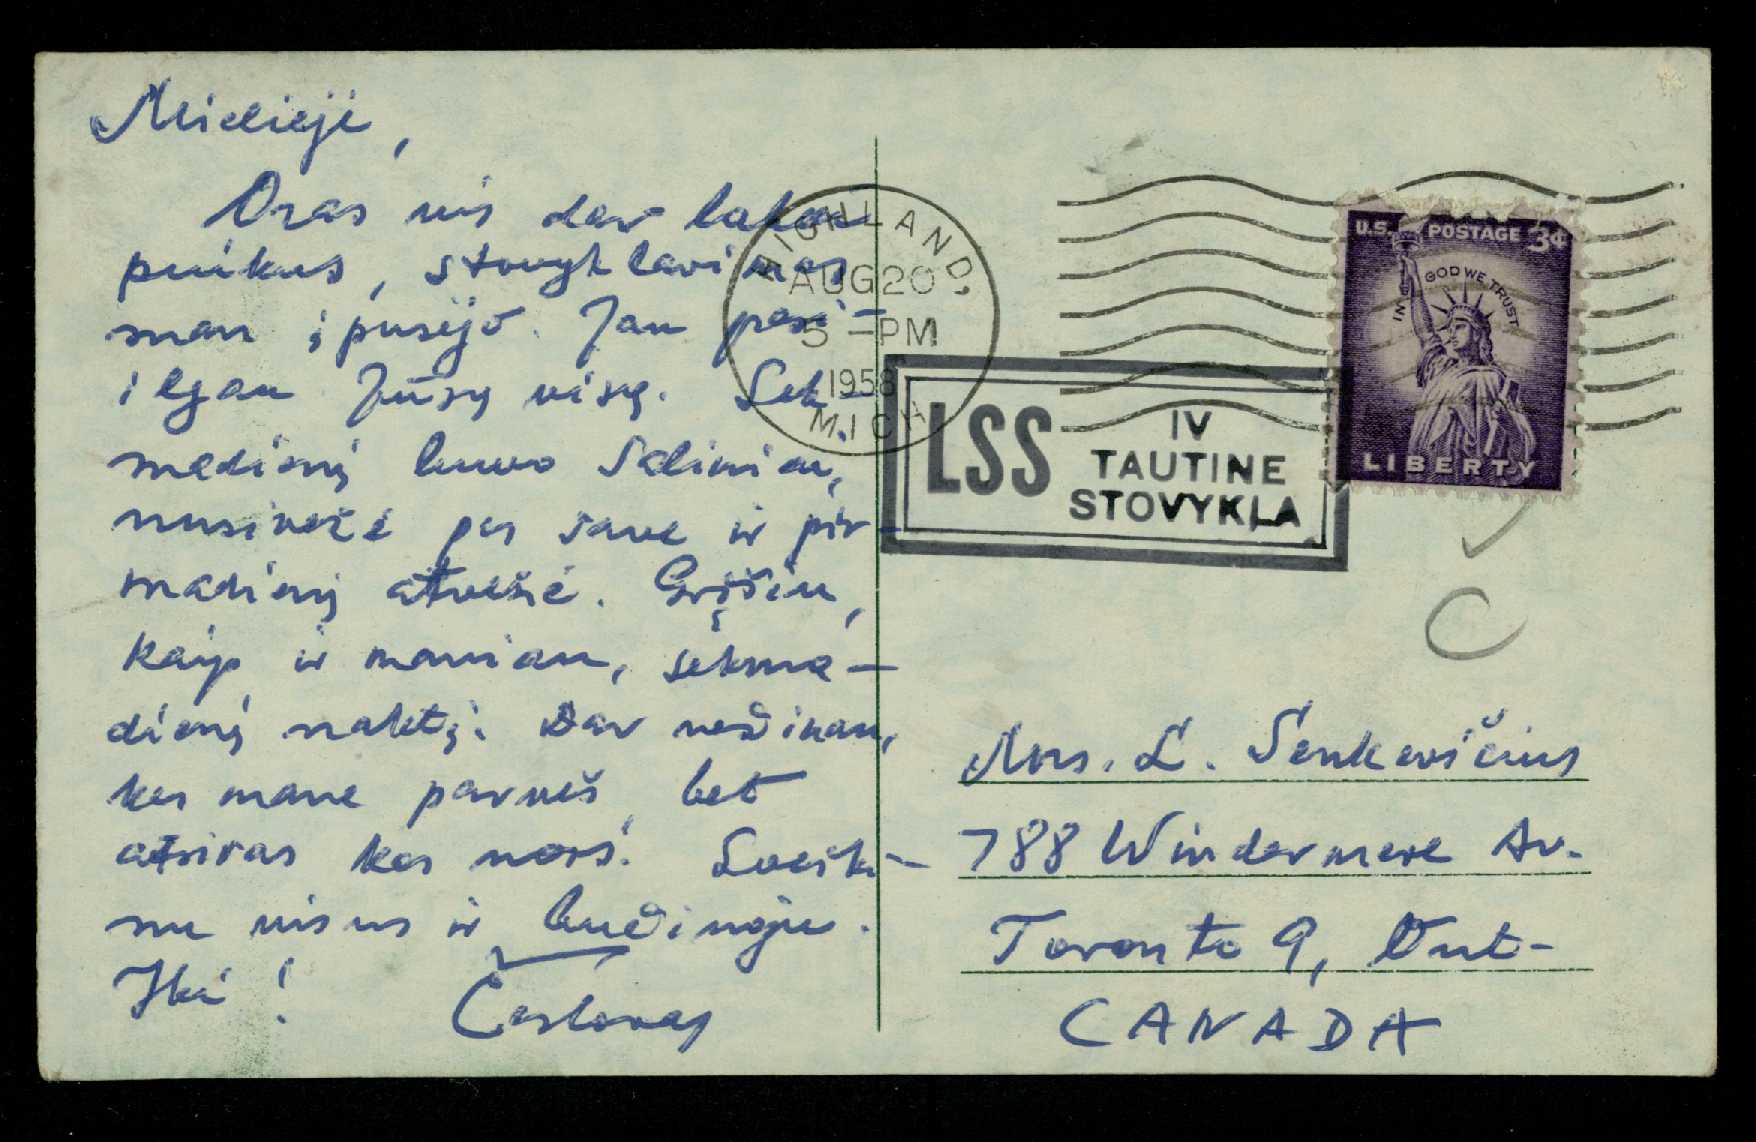 Mielieji,
Oras vis dar labai
puikus, stovyklavimas
man įpusėjo. Jau pasi-
ilgau Jūsų visų. Sek-
madienį buvo Salinian,
nusivežė pas save ir pir-
madienį atvežė. Grįšiu,
kaip ir maniau, sekma-
dienį naktį. Dar nežinau,
kas mane parveš, bet
atsiras kas nors. Sveiki-
nu visus ir bučiuoju.
Iki! Česlovas
HIGHLAND,
AUG 20
5 -PM
1958
MICH
U.S. POSTAGE 3¢
IN GOD WE TRUST
LIBERTY
LSS IV
TAUTINE
STOVYKLA
C
Mrs. L. Senkevičius
788 Windermere Av.
Toronto 9, Ont-
CANADA